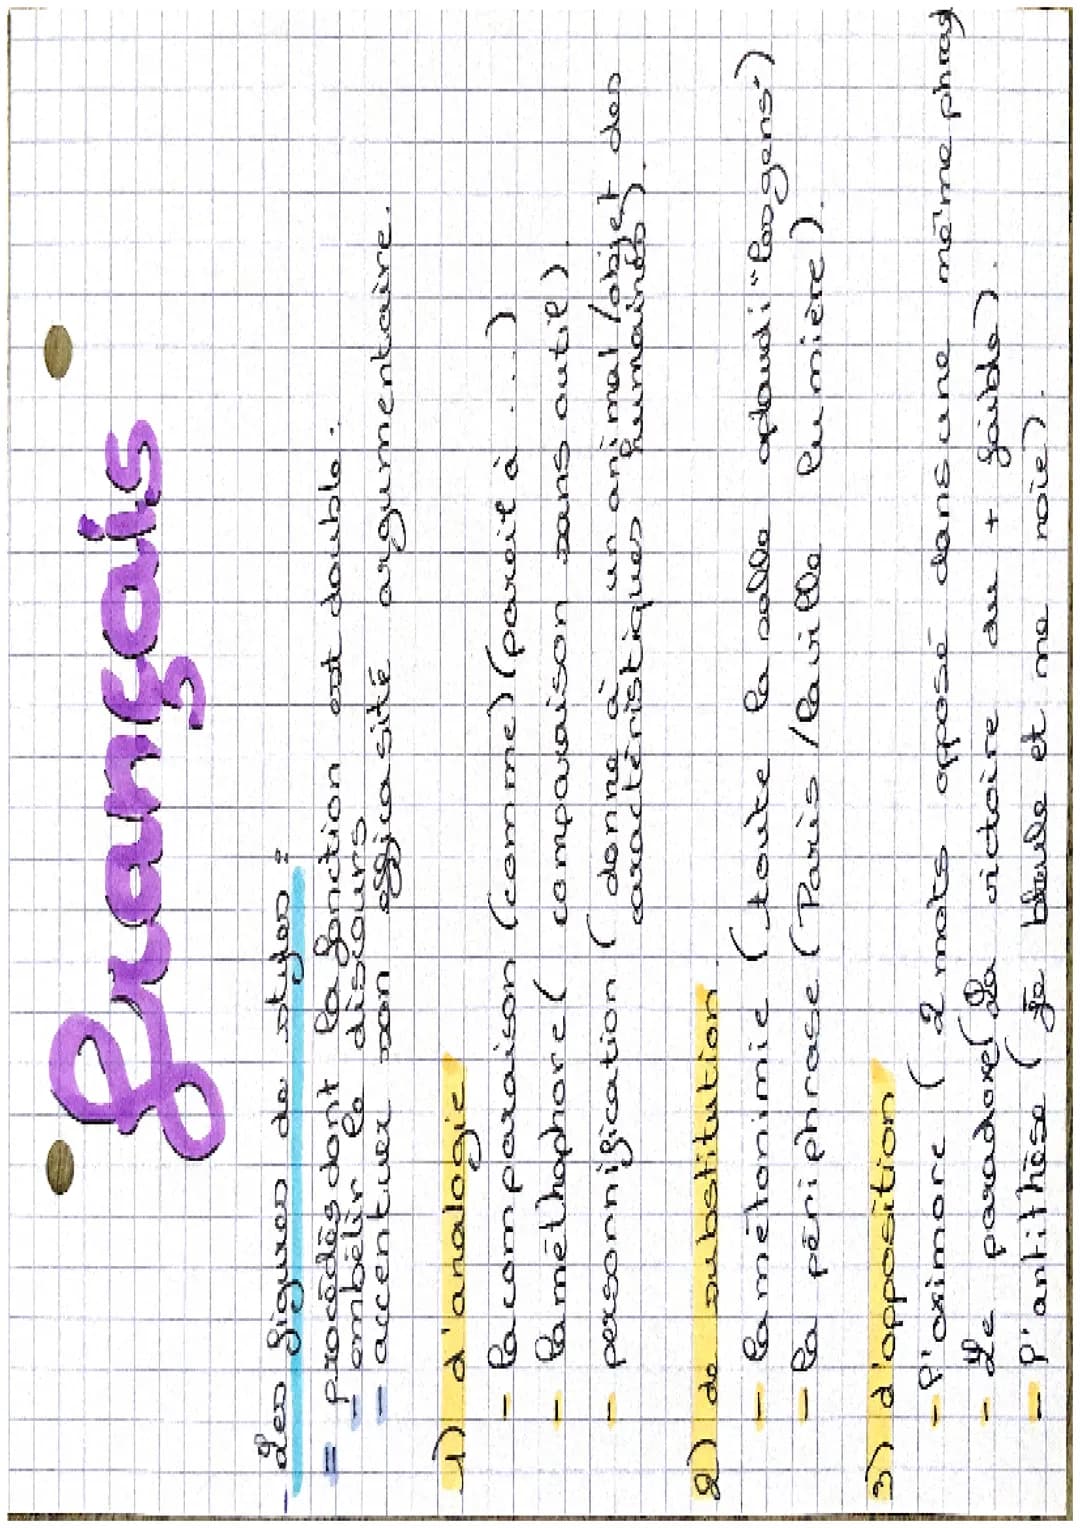 Français
Les figures de styles :
= procédés dont la fonction est double.
- embélir le discours
- accentuer son efficasité argumentaire.
1) d'analogie
- la comparaison (comme) (pareit à ...)
- la méthaphore (comparaison sans outil)
- personnification (donne à un animal / objet des
caractéristiques humaines).
2) de substitution.
- la métonimie (toute la salle aplaudi "les gens")
- la périphrase (Paris / la ville lumière).
3) d'opposition
- l'oximore (2 mots opposé dans une même phras
- Le paradoxe (La victoire au + faible).
- l'antithèse (je brule et me noie).